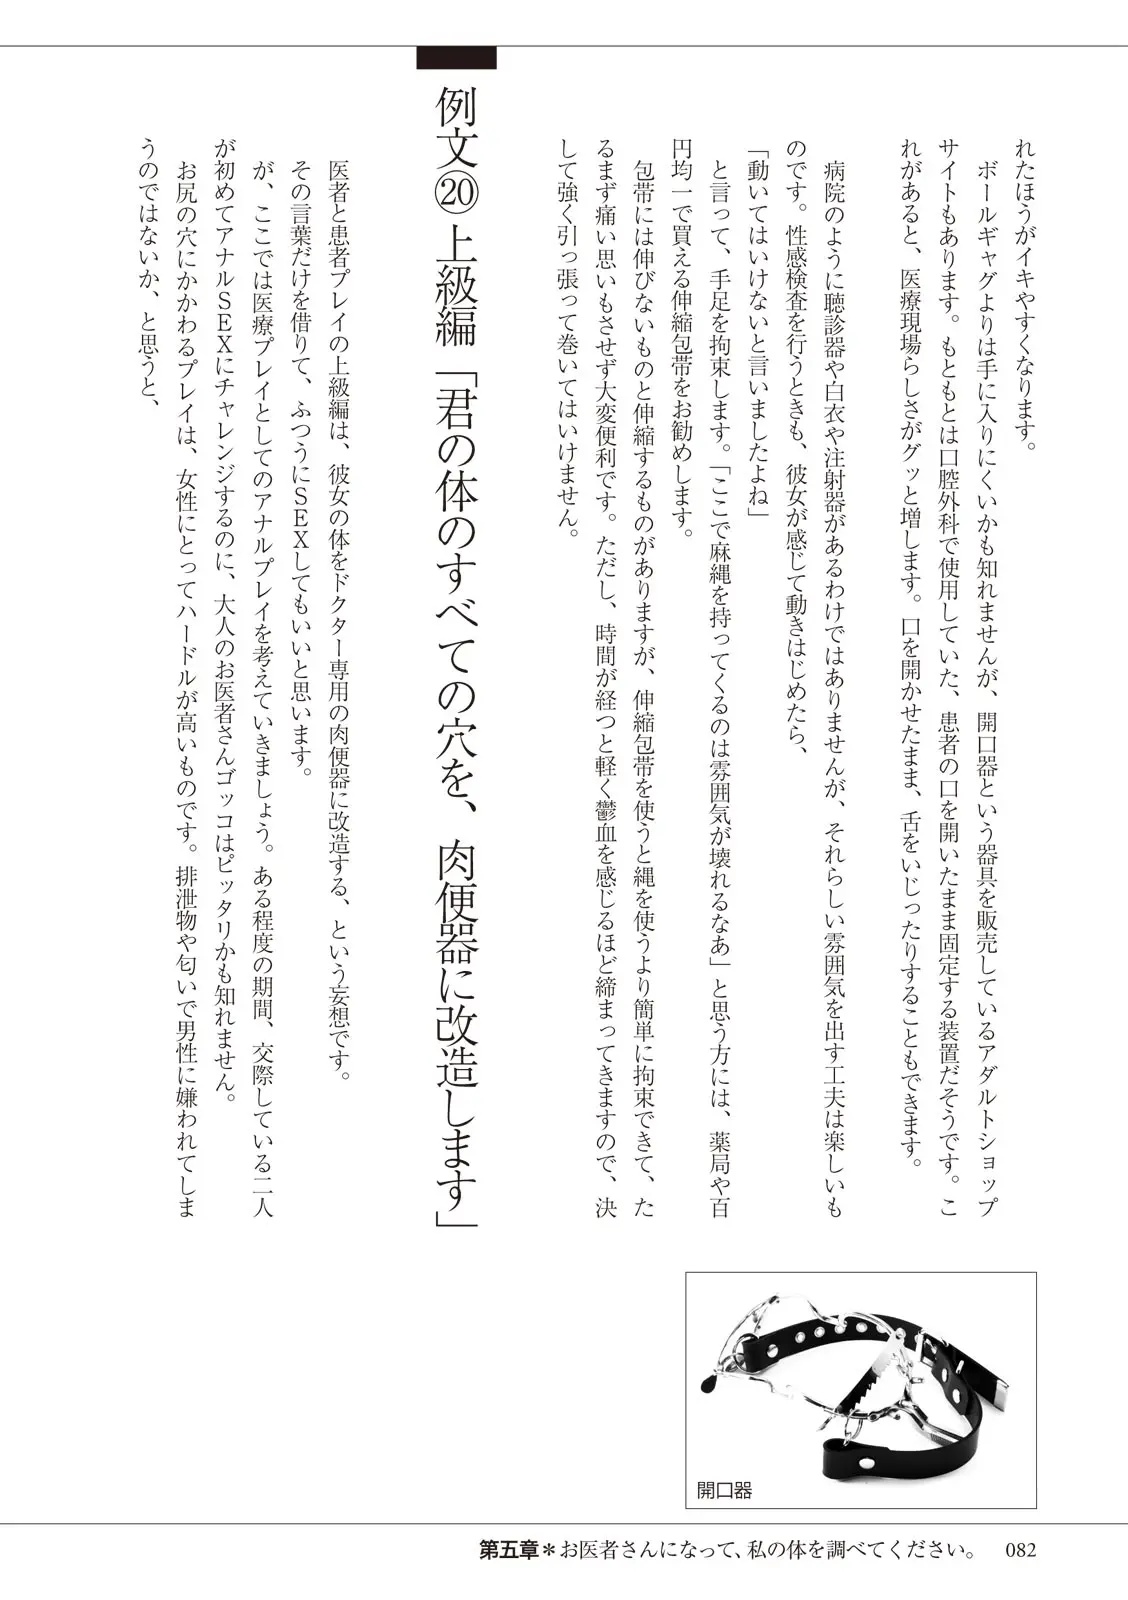 れたほうがイキやすくなります。
　ボールギャグよりは手に入りにくいかも知れませんが、開口器という器具を販売しているアダルトショップ
サイトもあります。もともとは口腔外科で使用していた、患者の口を開いたまま固定する装置だそうです。こ
れがあると、医療現場らしさがグッと増します。口を開かせたまま、舌をいじったりすることもできます。
　病院のように聴診器や白衣や注射器があるわけではありませんが、それらしい雰囲気を出す工夫は楽しいも
のです。性感検査を行うときも、彼女が感じて動きはじめたら、
「動いてはいけないと言いましたよね」
　と言って、手足を拘束します。「ここで麻縄を持ってくるのは雰囲気が壊れるなあ」と思う方には、薬局や百
円均一で買える伸縮包帯をお勧めします。
　包帯には伸びないものと伸縮するものがありますが、伸縮包帯を使うと縄を使うより簡単に拘束できて、た
るまず痛い思いもさせず大変便利です。ただし、時間が経つと軽く鬱血を感じるほど締まってきますので、決
して強く引っ張って巻いてはいけません。
例文⑳ 上級編「君の体のすべての穴を、肉便器に改造します」
　医者と患者プレイの上級編は、彼女の体をドクター専用の肉便器に改造する、という妄想です。
　その言葉だけを借りて、ふつうにＳＥＸしてもいいと思います。
　が、ここでは医療プレイとしてのアナルプレイを考えていきましょう。ある程度の期間、交際している二人
が初めてアナルＳＥＸにチャレンジするのに、大人のお医者さんゴッコはピッタリかも知れません。
　お尻の穴にかかわるプレイは、女性にとってハードルが高いものです。排泄物や匂いで男性に嫌われてしま
うのではないか、と思うと、
開口器
第五章＊お医者さんになって、私の体を調べてください。　082